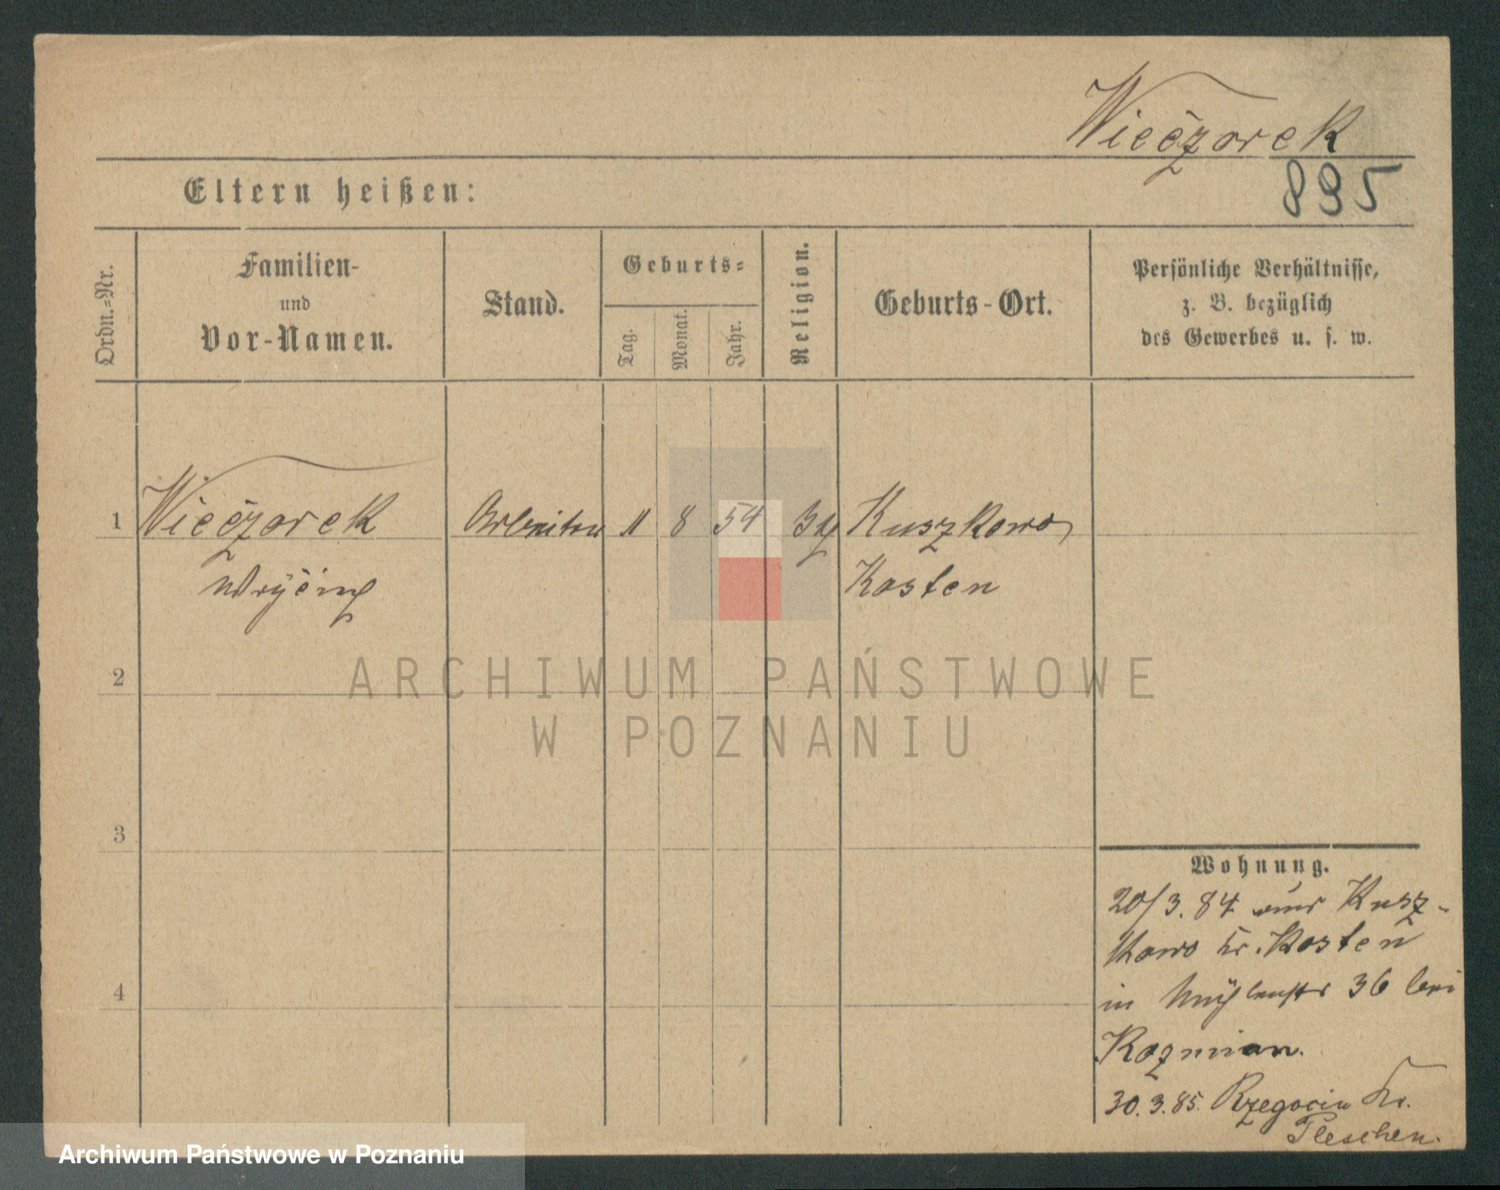 Wieczorek
895
Eltern heißen:
Ordn.-Nr.
Familien-
und
Vor-Namen.
Stand.
Geburts-
Tag.
Monat.
Jahr.
Religion.
Geburts-Ort.
Persönliche Verhältnisse,
z. B. bezüglich
des Gewerbes u. s. w.
1 Wieczorek 11 8 54 Kuszkowo
Kosten
2
ARCHIWUM PAŃSTWOWE
W POZNANIU
3
4
Wohnung.
20/3. 84 aus Kusz-
kowo Kr. Kosten
in Mühlenstr 36 bei
Kozmian.
30.3.85. Rzegocin Kr.
Pleschen.
Archiwum Państwowe w Poznaniu